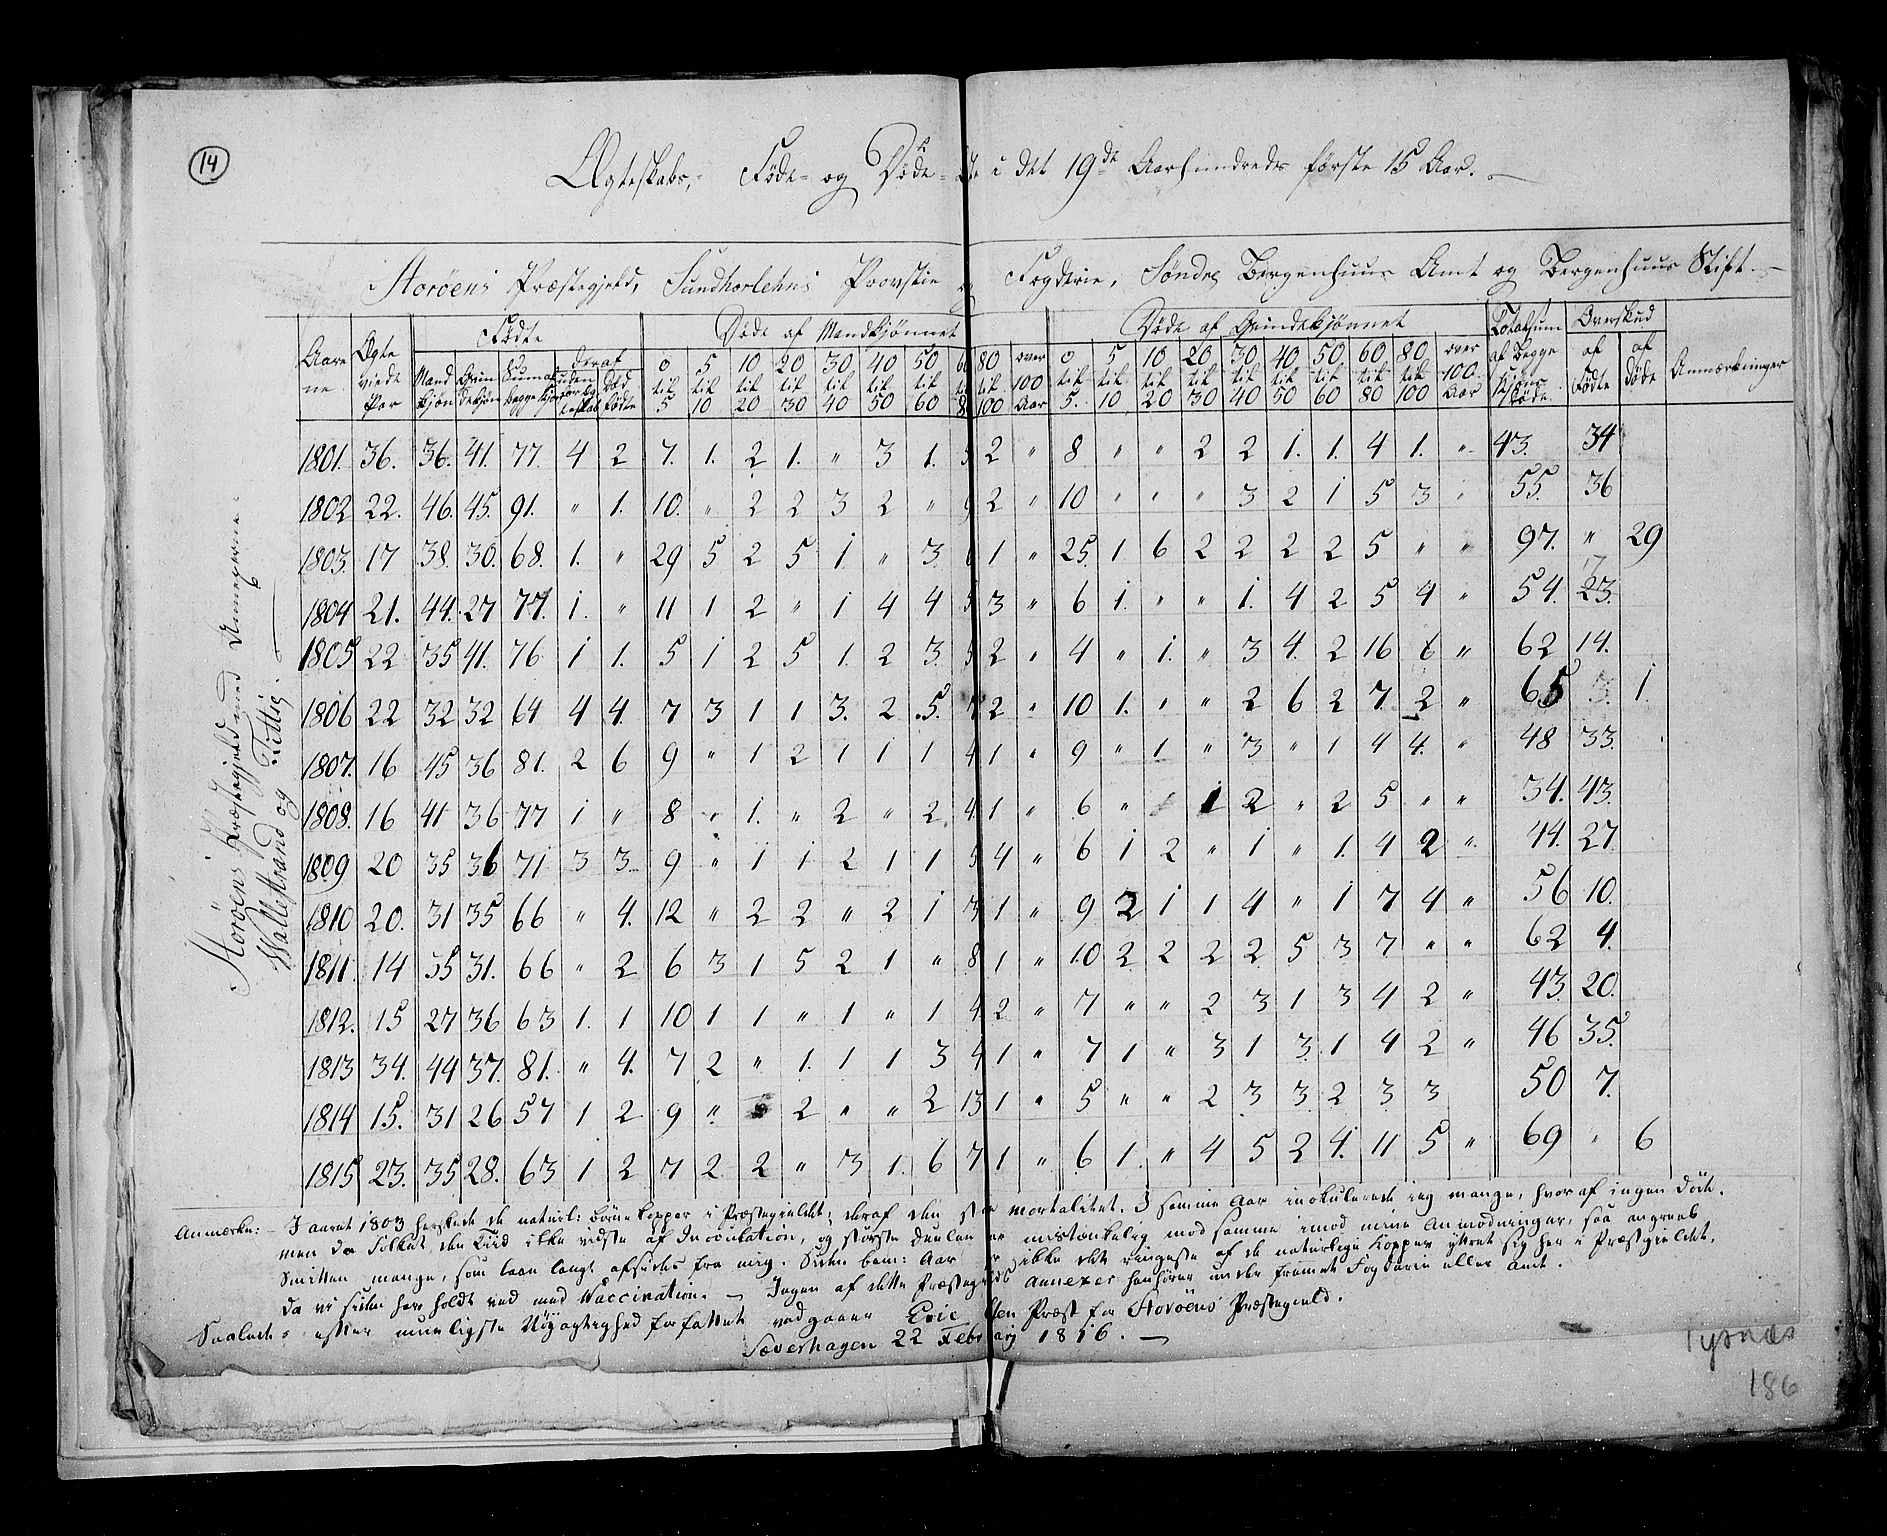 14
Ægteskabs,- Føde- og Døde- i det 19de Aarhundredes første 15 Aar.
Storöens Præstegjeld, Sundhorlehns Provstie Fogderie, Søndre Bergenhuus Amt og Bergenhuus Stift.
Storöens Præstegjeld med Annexerne
Wallestrand og Fittie.
Aarene | Ægteviede Par | Fødte | Døde af Mandkjønnet | Døde af Qvindekjønnet | Totalsum af begge Kjøns Døde | Overskud | Anmærkninger
Mandkjøn | Qvindekjøn | Summa begge Kjøn | deraf uden for Egteskab | Dødfødte | 0 til 5 | 5 til 10 | 10 til 20 | 20 til 30 | 30 til 40 | 40 til 50 | 50 til 60 | 60 til 8 | 80 til 100 | over 100 Aar | 0 til 5. | 5 til 10 | 10 til 20 | 20 til 30 | 30 til 40 | 40 til 50 | 50 til 60 | 60 til 80 | 80 til 100 | over 100 Aar | af Fødte | af Døde
1801. 36. 36. 41. 77. 4 2 7. 1. 2 1. " 3 1. 5 2 " 8 " " 2 2 1. 1. 4 1. " 43. 34
1802 22. 46. 45. 91. " 1. 10. " 2 2 3 2 " 9 2 " 10 " " " 3 2 1 5 3 " 55. 36
1803. 17 38. 30. 68. 1. " 29 5 2 5 1 " 3 6 1 " 25. 1 6 2 2 2 2 5 " " 97. " 29
1804 21. 44. 27 77. 1. " 11 1 2 " 1 4 4 5 3 " 6 1. " " 1. 4 2 5 4 " 54. 23.
1805 22 35 41. 76 1 1. 5 1 2 5 1. 2 3. 5 2 " 4 " 1. " 3 4. 2 16 6 " 62 14.
1806 22 32 32 64 4 4. 7 3 1 1 3. 2 5. 7 2 " 10 1. " " 2 6 2 7. 2 " 65 3. 1.
1807. 16 45 36 81. 2 6 9 " 1 2 1 1 1 4 1 " 9 " 1 " 3 " 1 4 4. " 48 33.
1808. 16 41 36 77 1 " 8 " 1. " 2 " 2 4 1 " 6 " 1 1 2 " 2 5 " " 34. 43.
1809 20 35 36 71 3 3 9 " 1 1 2 1 1 5 4 " 6 1 2 " 1 " 1. 4 2 " 44. 27.
1810 20. 31 35 66 " 4. 12 " 2 2 " 2 1 3 1 " 9 2 1 1 4 " 1 7 4 " 56 10.
1811. 14 35 31. 66 " 2 6 3 1 5 2 1 " 8 1 " 10 2 2 2 2 5 3 7 " " 62 4.
1812. 15 27 36 63 1. 1 10 1 1 " 1 " 1 4 2 " 7 " " 2 3 1 3 4 2 " 43. 20.
1813 34. 44 37. 81. " 4. 7 2 " 1. 1 1 3 4 1 " 7 1 " 3 1 3. 1 4 2 " 46 35.
1814 15. 31 26 57 1 2 9 " 2 " " 2 13 1 " 5 " " 2 3 3. 2 3 3 50 7.
1815 23. 35 28. 63 1 2 7 2 2 " 3 1. 6 7 1 " 6 1. " 4 5 2 4. 11 5 " 69 " 6
Anmærkn: - I aaret 1803 herskede de naturl: börnekopper i Præstegieldet; deraf den store mortalitet. I samme Aar inokulerede ieg mange, hvoraf ingen døde.
men da Folket den Tiid ikke vidste af Inoculation, og største Deelen mistænkelig mod samme imod mine Anmodninger, saa angreeb
Smitten mange, som laae langt afsides fra mig. Siden bem: Aar ikke det ringeste af de naturlige Kopper yttret sig her i Præstegieldet,
da vi siden have holdt ved med Vaccination. - Ingen af dette Præstegields Annexer henhører under fremmet Fogderie eller Amt.
Saaledes efter mueligste Nøyagtighed forfattet vedgaaer Præst for Storöens Præstegield.
Sæverhagen 22 Februarij 1816.
Tysnæs
186